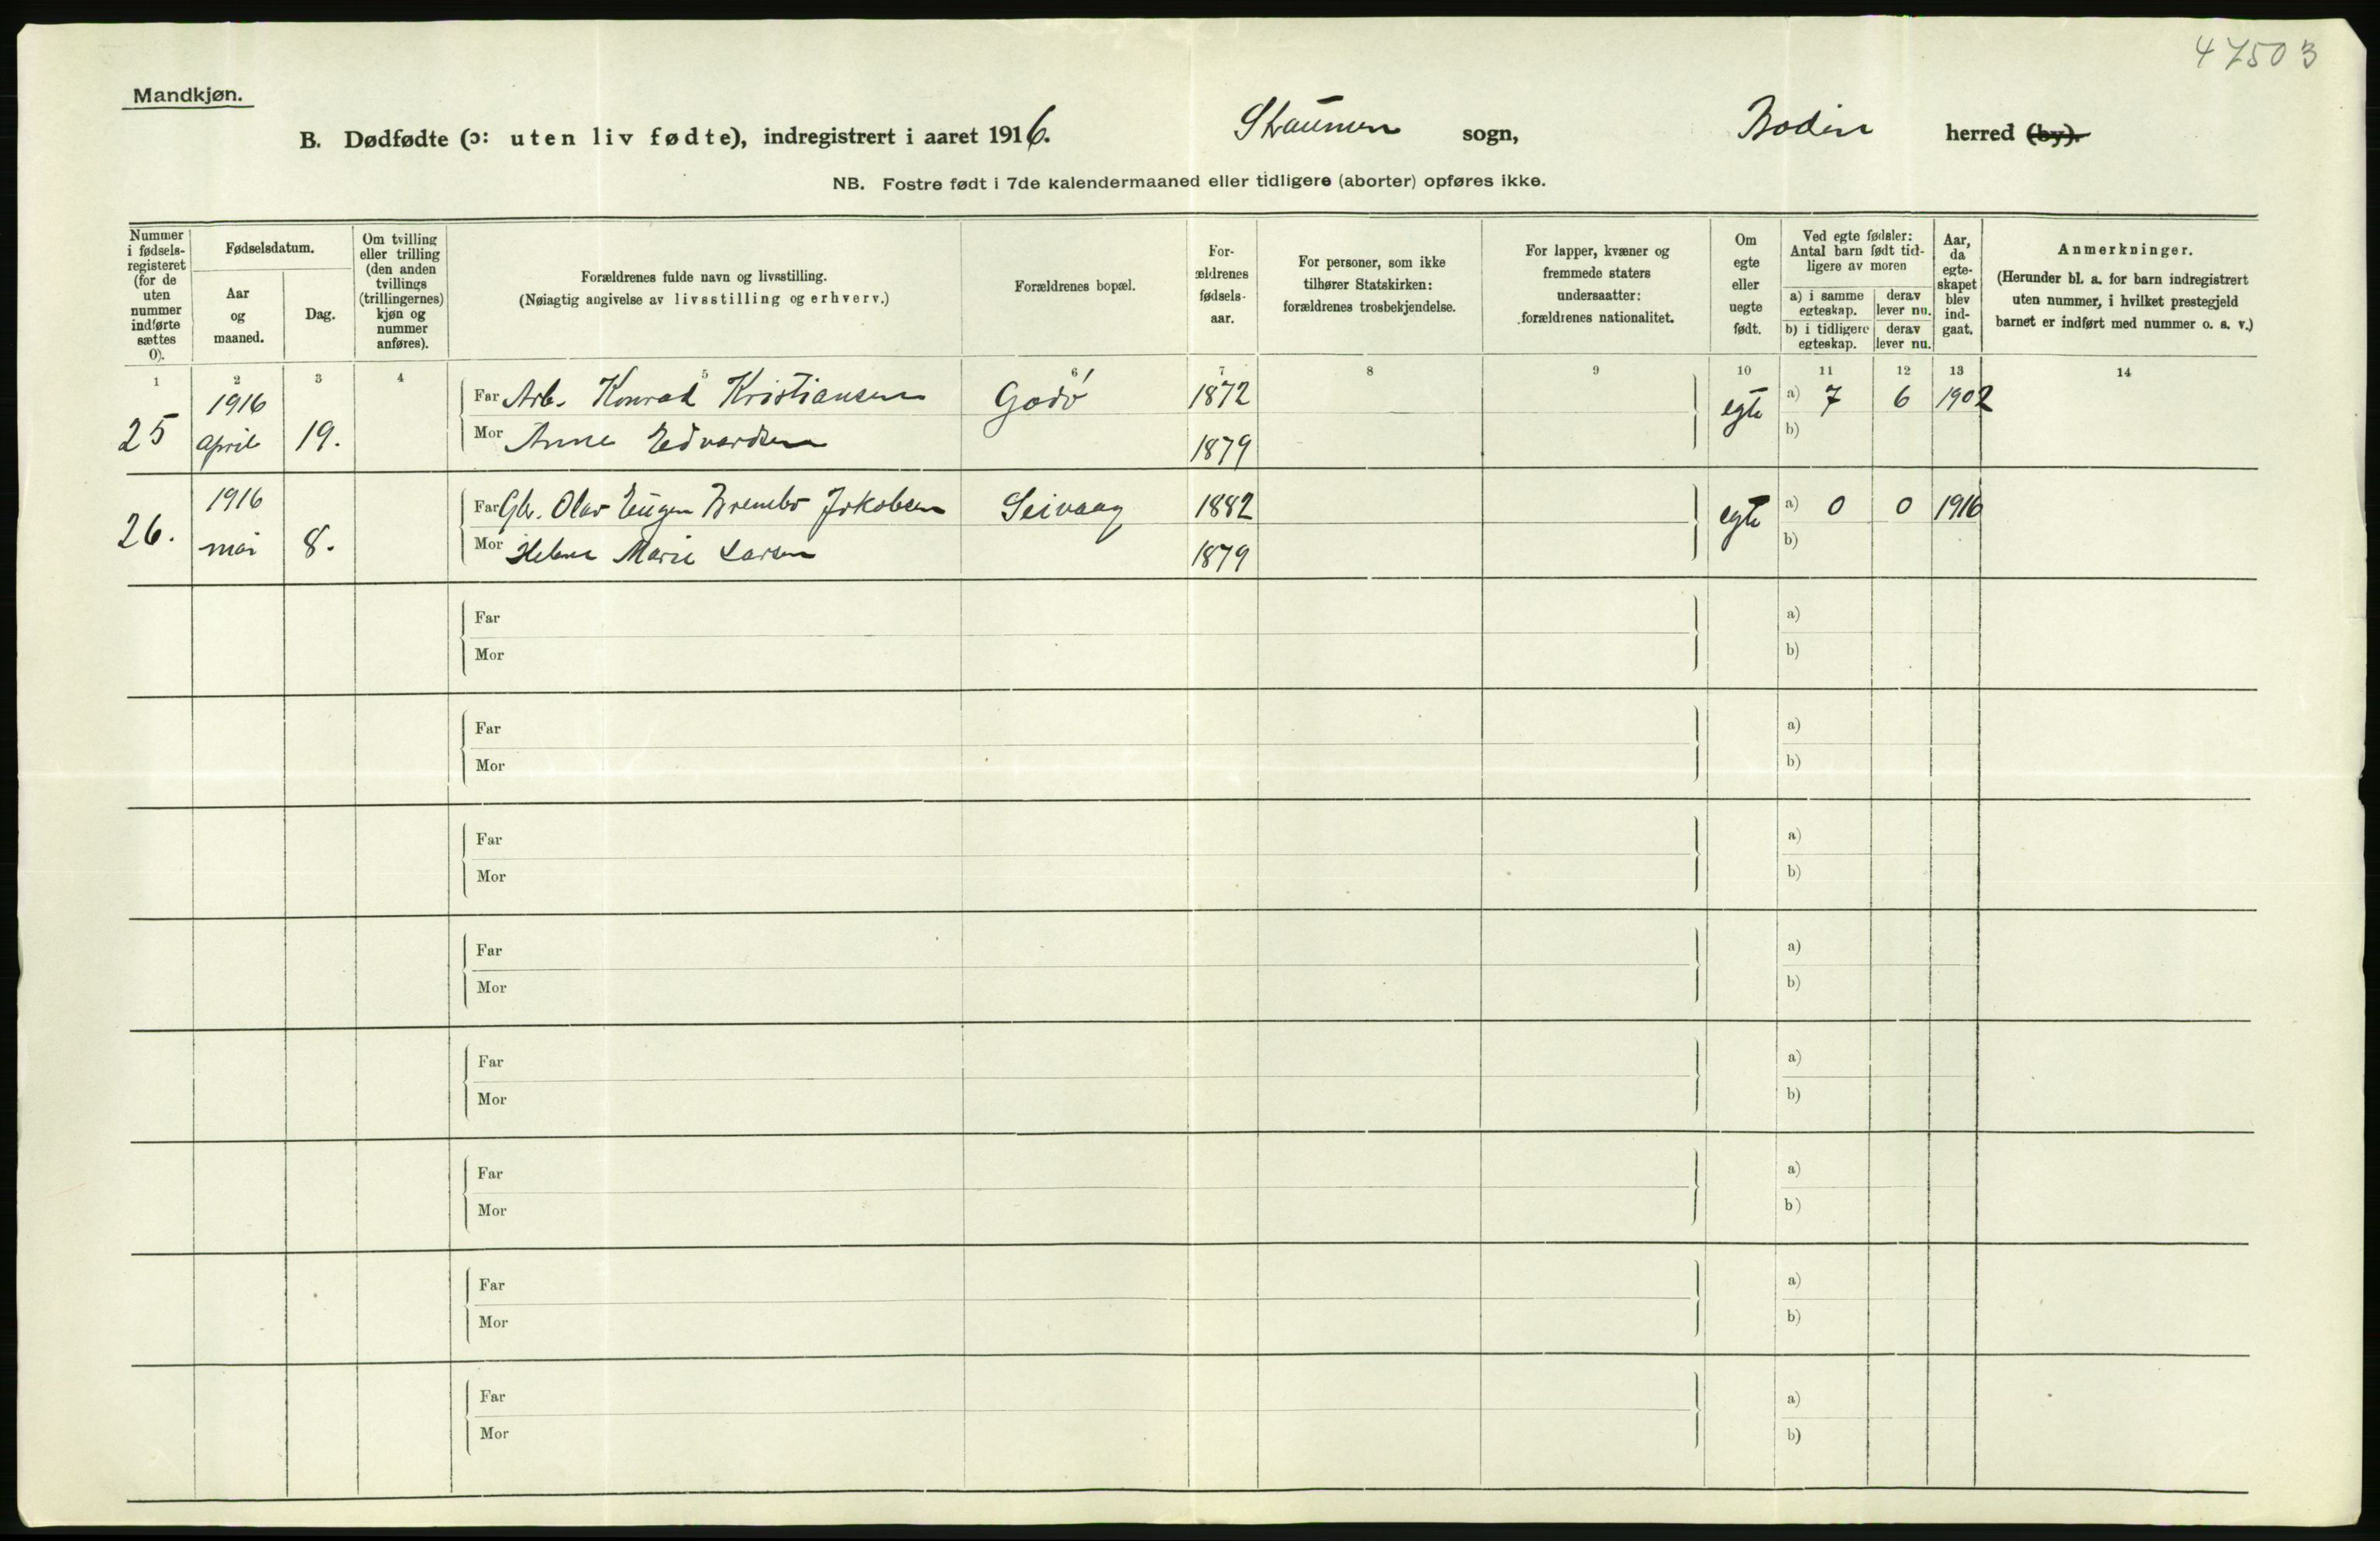 47503
Mandkjøn.
B. Dødfødte (ɔ: uten liv fødte), indregistrert i aaret 1916. Straumen sogn, Bodin herred (by).
NB. Fostre født i 7de kalendermaaned eller tidligere (aborter) opføres ikke.
Nummer i fødsels-registeret (for de uten nummer indførte sættes 0).
Fødselsdatum.
Aar og maaned.
Dag.
Om tvilling eller trilling (den anden tvillings (trillingernes) kjøn og nummer anføres).
Forældrenes fulde navn og livsstilling.
(Nøiagtig angivelse av livsstilling og erhverv.)
Forældrenes bopæl.
For-ældrenes fødsels-aar.
For personer, som ikke tilhører Statskirken: forældrenes trosbekjendelse.
For lapper, kvæner og fremmede staters undersaatter: forældrenes nationalitet.
Om egte eller uegte født.
Ved egte fødsler: Antal barn født tid-ligere av moren
a) i samme egteskap. derav lever nu.
b) i tidligere egteskap. derav lever nu.
Aar, da egte-skapet blev ind-gaat.
Anmerkninger.
(Herunder bl. a. for barn indregistrert uten nummer, i hvilket prestegjeld barnet er indført med nummer o. s. v.)
1 2 3 4 5 6 7 8 9 10 11 12 13 14
25 1916 april 19. Far Arb. Konrad Kristiansen Godø 1872 egte a) 7 6 1902
Mor Anne Edvardsen 1879 b)
26. 1916 mai 8. Far Gbr. Olav Eugen Brembo Jakobsen Seivaag 1882 egte a) 0 0 1916
Mor Helene Marie Larsen 1879 b)
Far a)
Mor b)
Far a)
Mor b)
Far a)
Mor b)
Far a)
Mor b)
Far a)
Mor b)
Far a)
Mor b)
Far a)
Mor b)
Far a)
Mor b)